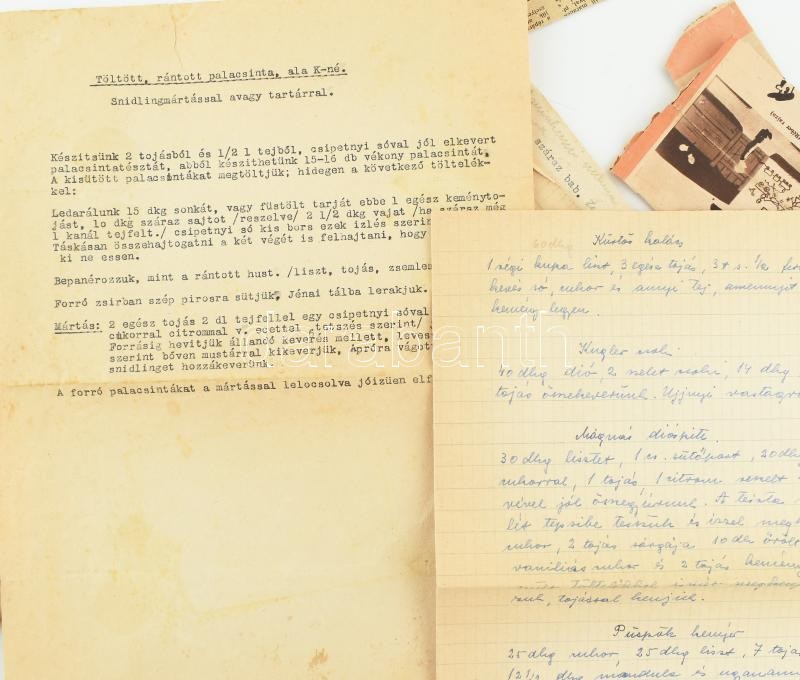 Töltött, rántott palacsinta, ala K-né.
Snidlingmártással avagy tartárral.
Készitsünk 2 tojásból és 1/2 l tejből, csipetnyi sóval jól elkevert
palacsintatésztát, abból készithetünk 15-16 db vékony palacsintát,
A kisütött palacsintákat megtöltjük; hidegen a következő töltelék-
kel:
Ledarálunk 15 dkg sonkát, vagy füstölt tarját ebbe 1 egész keményto-
jást, lo dkg száraz sajtot /reszelve/ 2 1/2 dkg vajat /ha száraz még
1 kanál tejfelt./ csipetnyi só kis bors ezek izlés szerin
Táskásan összehajtogatni a két végét is felhajtani, hogy
ki ne essen.
Bepanérozzuk, mint a rántott hust. /liszt, tojás, zsemles
Forró zsirban szép pirosra sütjük, Jénai tálba lerakjuk.
Mártás: 2 egész tojás 2 dl tejfellel egy csipetnyi sóval
cukorral citrommal v. ecettel tetszés szerint/
Forrásig hevitjük állandó keverés mellett, leves
szerint bőven mustárral kikeverjük, Apróra vágot
snidlinget hozzákeverünk.
A forró palacsintákat a mártással lelocsolva jóizüen elf
száraz bab.
60 dkg
Kürtös kalács
1 régi kupa liszt, 3 egész tojás, 3
kevés só, cukor és annyi tej, amennyit
kemény legyen.
Kugler
40 dkg dió, 2 szelet 14 dkg
tojás összekeverünk. Ujjnyi vastagra
Mágnás dióspite.
30 dkg lisztet, 1 cs. sütőport, 20 dkg
cukorral, 1 tojás, 1 citrom reszelt
vével jól összegyúrunk. A tészta
lét tepsibe teszük és izzel meg
cukor, 2 tojás sárgája 10 dk őrölt
vaniliás cukor és 2 tojás kemény
zuk, tojással kenjük.
Püspök kenyér
25 dkg cukor, 25 dkg liszt, 7 tojás
12 1/2 dkg mandula és ugyanann
darabanth